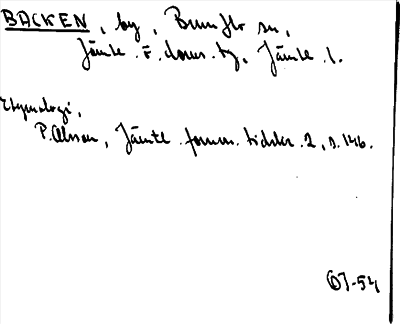 BACKEN, by, Brunflo sn,
Jämtl. ö. doms. tg, Jämtl. l.
Etymologi,
P. Olsson, Jämtl. fornm. tidskr. 2, s. 146.
OJ-54